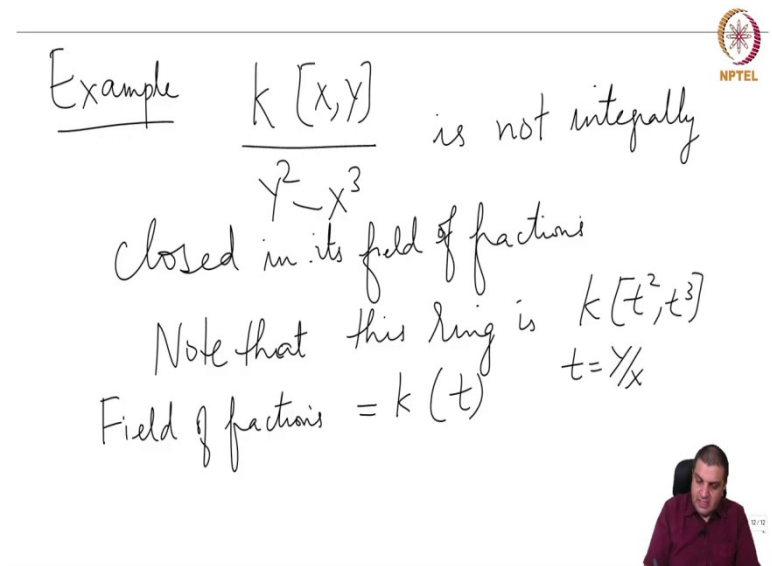 NPTEL
Example k[X,Y] is not integrally
Y² - X³
closed in its field of fractions
Note that this ring is k[t²,t³]
t = Y/X
Field of fractions = k(t)
12/12